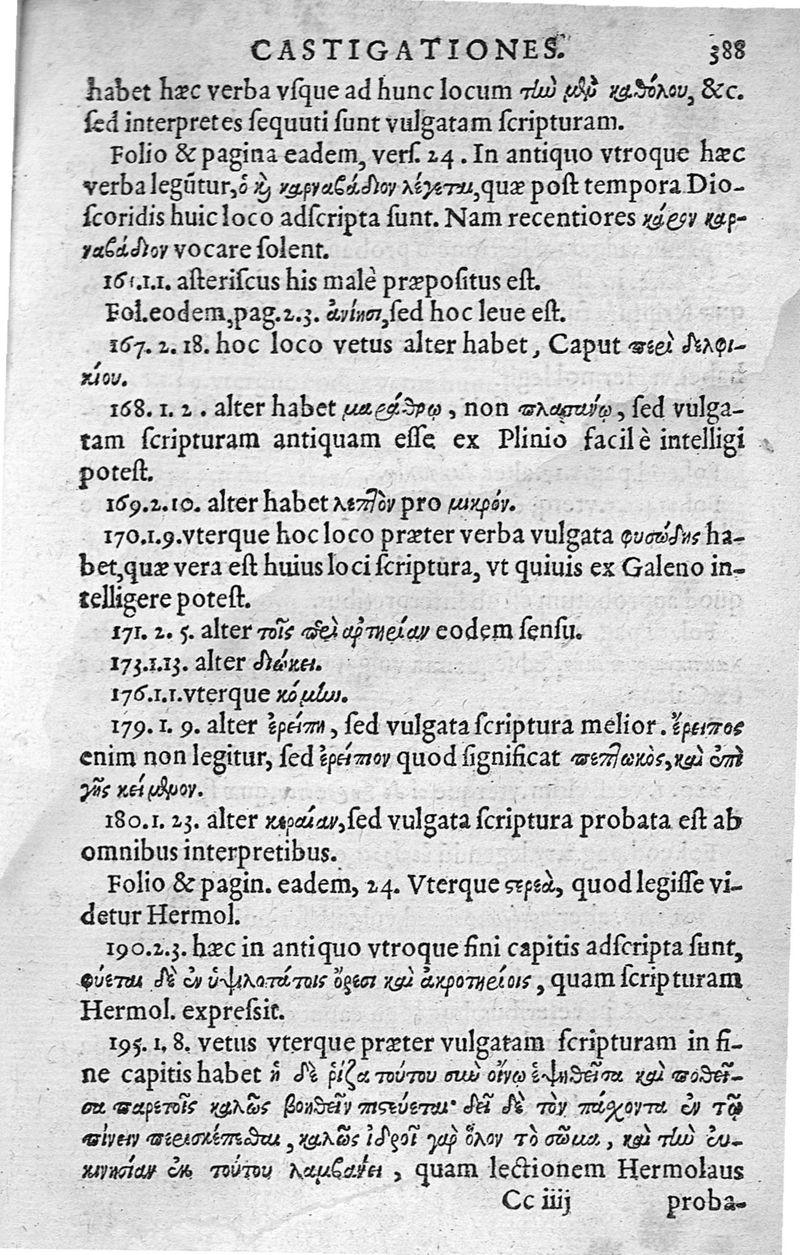 CASTIGATIONES. 388
habet hæc verba vſque ad hunc locum τὴν μὲν καθόλου, &c.
ſed interpretes ſequuti ſunt vulgatam ſcripturam.
Folio & pagina eadem, verſ. 24. In antiquo vtroque hæc
verba legūtur, ὁ καὶ καρναβάδιον λέγεται, quæ poſt tempora Dio-
ſcoridis huic loco adſcripta ſunt. Nam recentiores κάρον καρ-
ναβάδιον vocare ſolent.
165.1.1. aſteriſcus his malè præpoſitus eſt.
Fol.eodem,pag.2.3. ἀνίησι, ſed hoc leue eſt.
167. 2. 18. hoc loco vetus alter habet, Caput περὶ δελφι-
κίου.
168. 1. 2. alter habet μαράθρῳ, non πλατάνῳ, ſed vulga-
tam ſcripturam antiquam eſſe ex Plinio facilè intelligi
poteſt.
169.2.10. alter habet λεπτὸν pro μικρόν.
170.1.9.vterque hoc loco præter verba vulgata φυσώδης ha-
bet,quæ vera eſt huius loci ſcriptura, vt quiuis ex Galeno in-
telligere poteſt.
171. 2. 5. alter τοῖς περὶ ἀρτηρίαν eodem ſenſu.
173.1.13. alter διώκει.
176.1.1.vterque κόμην.
179. 1. 9. alter ἐρείπη, ſed vulgata ſcriptura melior. ἔρειπος
enim non legitur, ſed ἐρείπιον quod ſignificat πεπτωκὸς, καὶ ἐπὶ
γῆς κείμενον.
180. 1. 23. alter κεραίαν, ſed vulgata ſcriptura probata eſt ab
omnibus interpretibus.
Folio & pagin. eadem, 24. Vterque στερεὰ, quod legiſſe vi-
detur Hermol.
190.2.3. hæc in antiquo vtroque fini capitis adſcripta ſunt,
φύεται δὲ ἐν ὑψηλοτάτοις ὄρεσι καὶ ἀκρωτηρίοις, quam ſcripturam
Hermol. expreſſit.
195. 1. 8. vetus vterque præter vulgatam ſcripturam in fi-
ne capitis habet ἡ δὲ ῥίζα τούτου σὺν οἴνῳ ἑψηθεῖσα καὶ ποθεῖ-
σα παρετοῖς καλῶς βοηθεῖν πιστεύεται· δεῖ δὲ τὸν πάσχοντα ἐν τῷ
πίνειν περισκέπεσθαι, καλῶς ἱδροῖ γὰρ ὅλον τὸ σῶμα, καὶ τὴν εὐ-
κινησίαν ἐκ τούτου λαμβάνει, quam lectionem Hermolaus
Cc iiij proba-